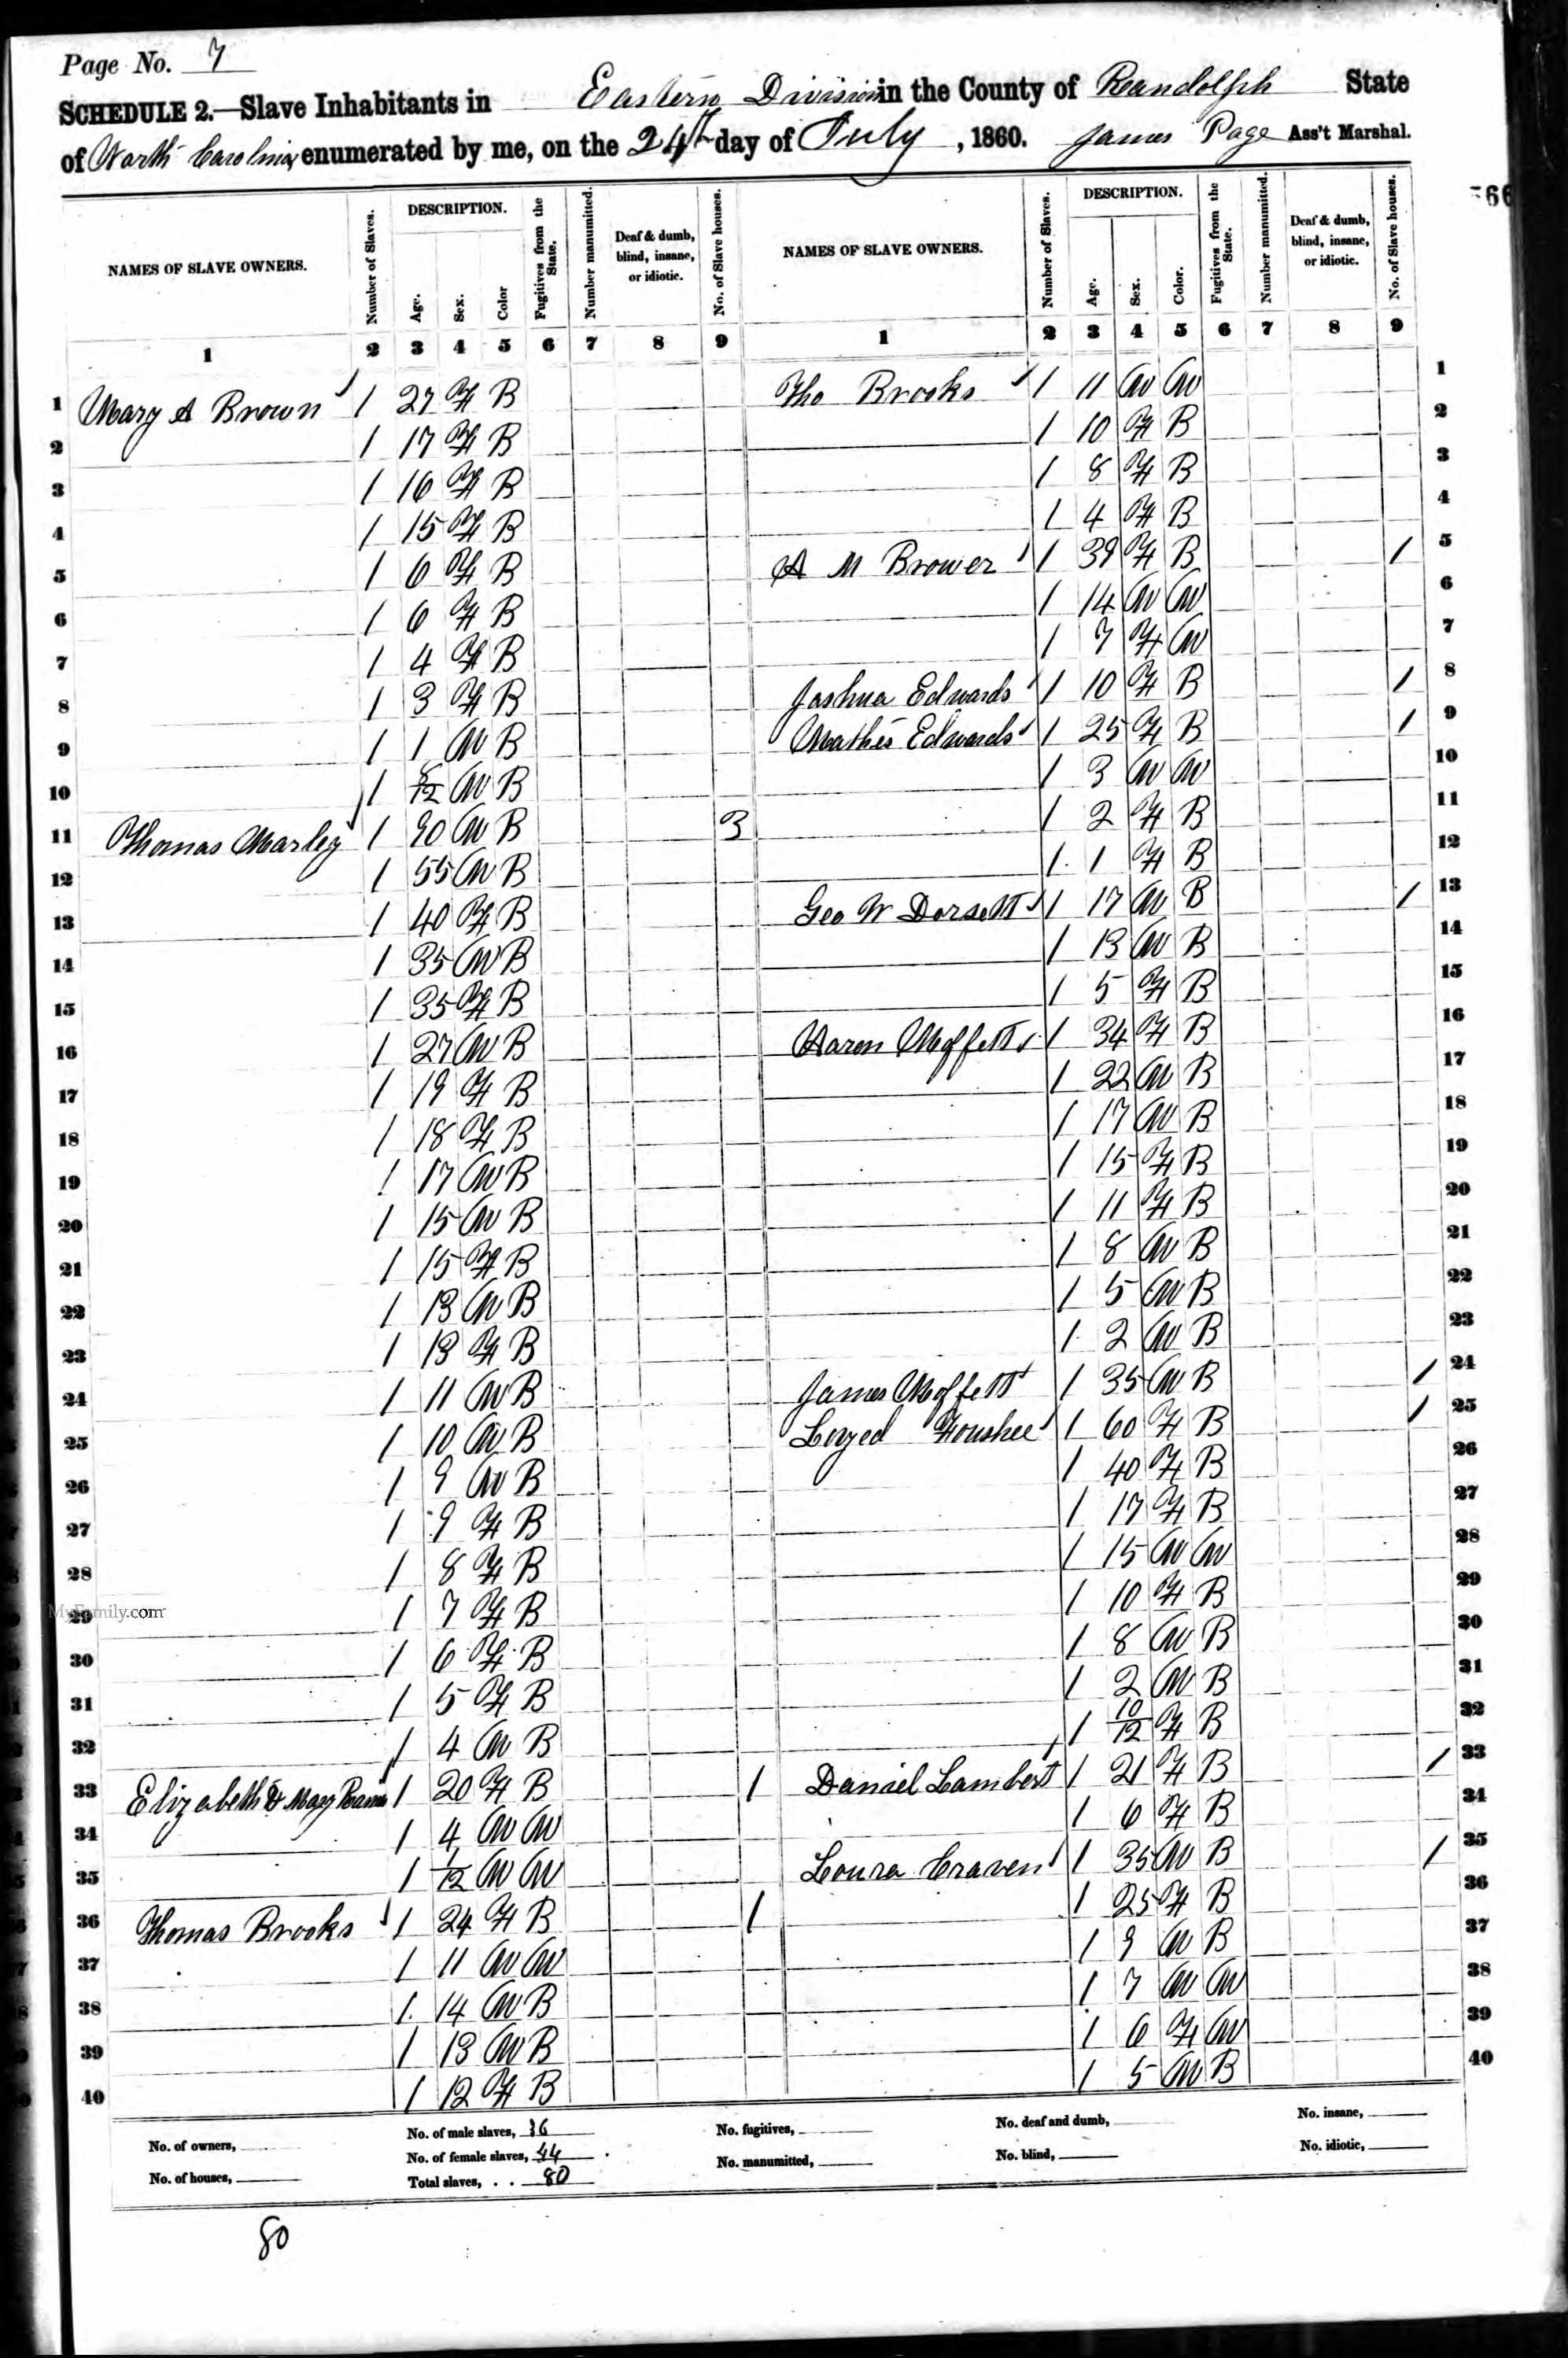 Page No. 7
SCHEDULE 2.—Slave Inhabitants in Eastern Division in the County of Randolph State
of North Carolina, enumerated by me, on the 24th day of July, 1860. James Page Ass't Marshal.
566
NAMES OF SLAVE OWNERS. Number of Slaves. DESCRIPTION. Age. Sex. Color Fugitives from the State. Number manumitted. Deaf & dumb, blind, insane, or idiotic. No. of Slave houses. NAMES OF SLAVE OWNERS. Number of Slaves. DESCRIPTION. Age. Sex. Color. Fugitives from the State. Number manumitted. Deaf & dumb, blind, insane, or idiotic. No. of Slave houses.
1 2 3 4 5 6 7 8 9 1 2 3 4 5 6 7 8 9
1 Mary A Brown 1 27 F B Tho Brooks 1 11 M M 1
2 1 17 F B 1 10 F B 2
3 1 16 F B 1 8 F B 3
4 1 15 F B 1 4 F B 4
5 1 6 F B A M Brower 1 39 F B 1 5
6 1 6 F B 1 14 M M 6
7 1 4 F B 1 7 F M 7
8 1 3 F B Joshua Edwards 1 10 F B 1 8
9 1 1 M B Mathis Edwards 1 25 F B 1 9
10 1 /12 M B 1 3 M M 10
11 Thomas Marley 1 90 M B 3 1 2 F B 11
12 1 55 M B 1 1 F B 12
13 1 40 F B Geo W Dorsett 1 17 M B 1 13
14 1 35 M B 1 13 M B 14
15 1 35 F B 1 5 F B 15
16 1 27 M B Aaron Moffett 1 34 F B 16
17 1 19 F B 1 22 M B 17
18 1 18 F B 1 17 M B 18
19 1 17 M B 1 15 F B 19
20 1 15 M B 1 11 F B 20
21 1 15 F B 1 8 M B 21
22 1 13 M B 1 5 M B 22
23 1 13 F B 1 2 M B 23
24 1 11 M B James Moffett 1 35 M B 1 24
25 1 10 M B Loyed Foushee 1 60 F B 1 25
26 1 9 M B 1 40 F B 26
27 1 9 F B 1 17 F B 27
28 1 8 F B 1 15 M M 28
29 1 7 F B 1 10 F B 29
MyFamily.com
30 1 6 F B 1 8 M B 30
31 1 5 F B 1 2 M B 31
32 1 4 M B 1 10/12 F B 32
33 Elizabeth & Mary 1 20 F B 1 Daniel Lambert 1 21 F B 1 33
34 1 4 M M 1 6 F B 34
35 1 1/12 M M Loura Craven 1 35 M B 1 35
36 Thomas Brooks 1 24 F B 1 1 25 F B 36
37 1 11 M M 1 9 M B 37
38 1 14 M B 1 7 M M 38
39 1 13 M B 1 6 F M 39
40 1 12 F B 1 5 M B 40
No. of owners, No. of male slaves, 36 No. fugitives, No. deaf and dumb, No. insane,
No. of houses, No. of female slaves, 44 No. manumitted, No. blind, No. idiotic,
Total slaves, . . 80
80